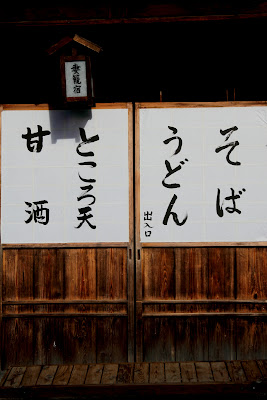 そば
うどん
出入口
ところ天
甘酒